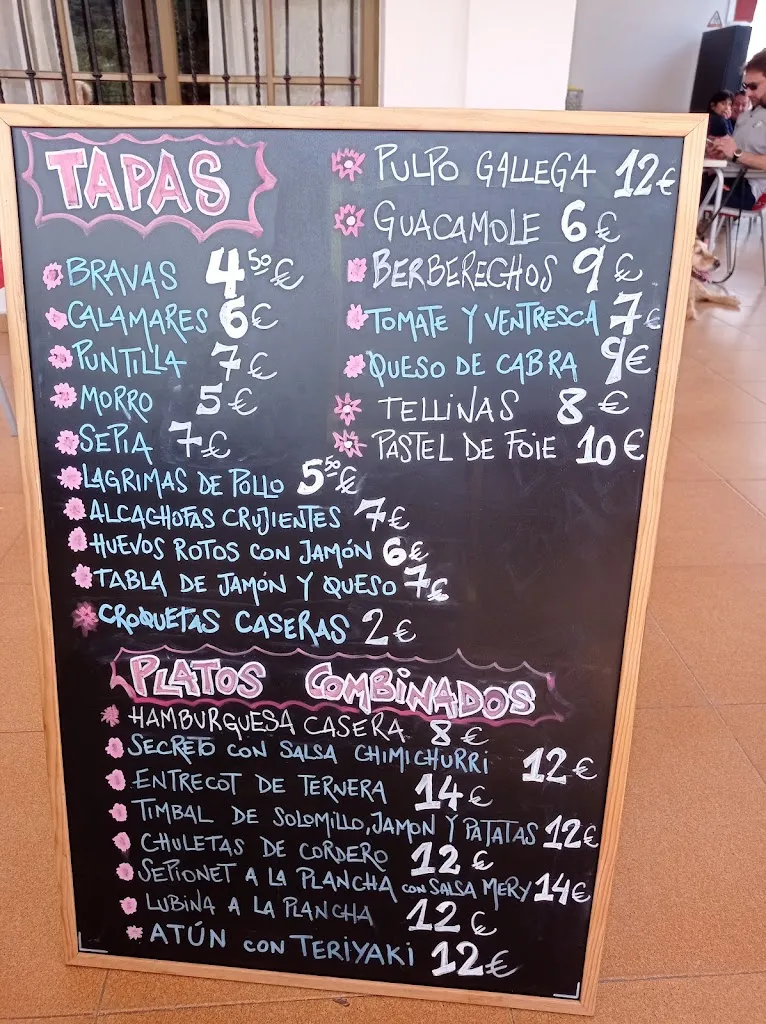 TAPAS
BRAVAS 4,50 €
CALAMARES 6 €
PUNTILLA 7 €
MORRO 5 €
SEPIA 7 €
LAGRIMAS DE POLLO 5,50 €
ALCACHOFAS CRUJIENTES 7 €
HUEVOS ROTOS CON JAMÓN 6 €
TABLA DE JAMÓN Y QUESO 7 €
CROQUETAS CASERAS 2 €
PULPO GALLEGA 12 €
GUACAMOLE 6 €
BERBERECHOS 9 €
TOMATE Y VENTRESCA 7 €
QUESO DE CABRA 9 €
TELLINAS 8 €
PASTEL DE FOIE 10 €
PLATOS COMBINADOS
HAMBURGUESA CASERA 8 €
SECRETO CON SALSA CHIMICHURRI 12 €
ENTRECOT DE TERNERA 14 €
TIMBAL DE SOLOMILLO, JAMON Y PATATAS 12 €
CHULETAS DE CORDERO 12 €
SEPIONET A LA PLANCHA CON SALSA MERY 14 €
LUBINA A LA PLANCHA 12 €
ATÚN CON TERIYAKI 12 €